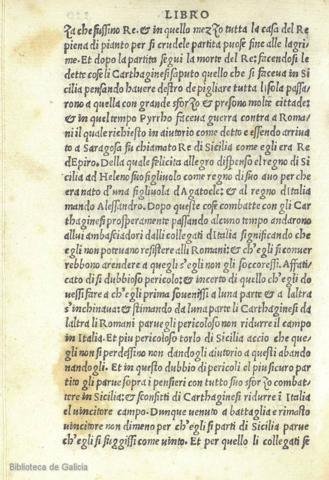 LIBRO
Za che fussino Re. & in quello mezZo tutta la casa del Re
piena di pianto per si crudele partita puose fine alle lagri-
me. Et dopo la partita segui la morte del Re: facendosi le
dette cose li Carthaginesi saputo quello che si faceua in Si
cilia pensando hauere destro de pigliare tutta lisola passa
rono a quella con grande sforZo & presono molte cittade:
& in quel tempo Pyrrho faceua guerra contro a Roma-
ni il quale richiesto in aiutorio come detto e essendo arriua
to a Saragosa fu chiamato Re di Sicilia come egli era Re
dEpiro. Della quale felicita allegro dispenso el regno di Si
cilia ad Heleno suo figliuolo come regno di suo auo per che
era nato d'una figliuola d'Agatocle: & al regno d'Italia
mando Alessandro. Dopo queste cose combatte con gli Car
thaginesi prosperamente passando alcuno tempo andarono
a llui ambasciadori dalli collegati d'Italia significando che
egli non potenano resistere alli Romani: & ch'egli si conuer
rebbono arendere a quegli s'egli non gli soccoressi. Affati
cato di si dubbioso pericolo: & incerto di quello ch'egli do
uessi fare a ch'egli prima souenissi a luna parte & a laltra
s'inchinaua: & stimando da luna parte li Carthaginesi da
laltra li Romani parue gli pericoloso non ridurre il campo
in Italia. Et piu pericoloso torlo di Sicilia accio che que-
gli non si perdessino non dandogli aiutorio a questi aband
nandogli. Et in questo dubbio di pericoli el piu sicuro par
tito gli parue sopra i pensieri con tutto suo sforZo combat-
tere in Sicilia: & sconfitti di Carthaginesi ridurre i Italia
el uincitore campo. Dunque uenuto a battaglia e rimasto
uincitore non dimeno per ch'egli si parti di Sicilia parue
ch'egli si fuggissi come uinto. Et per quello li collegati se
Biblioteca de Galicia